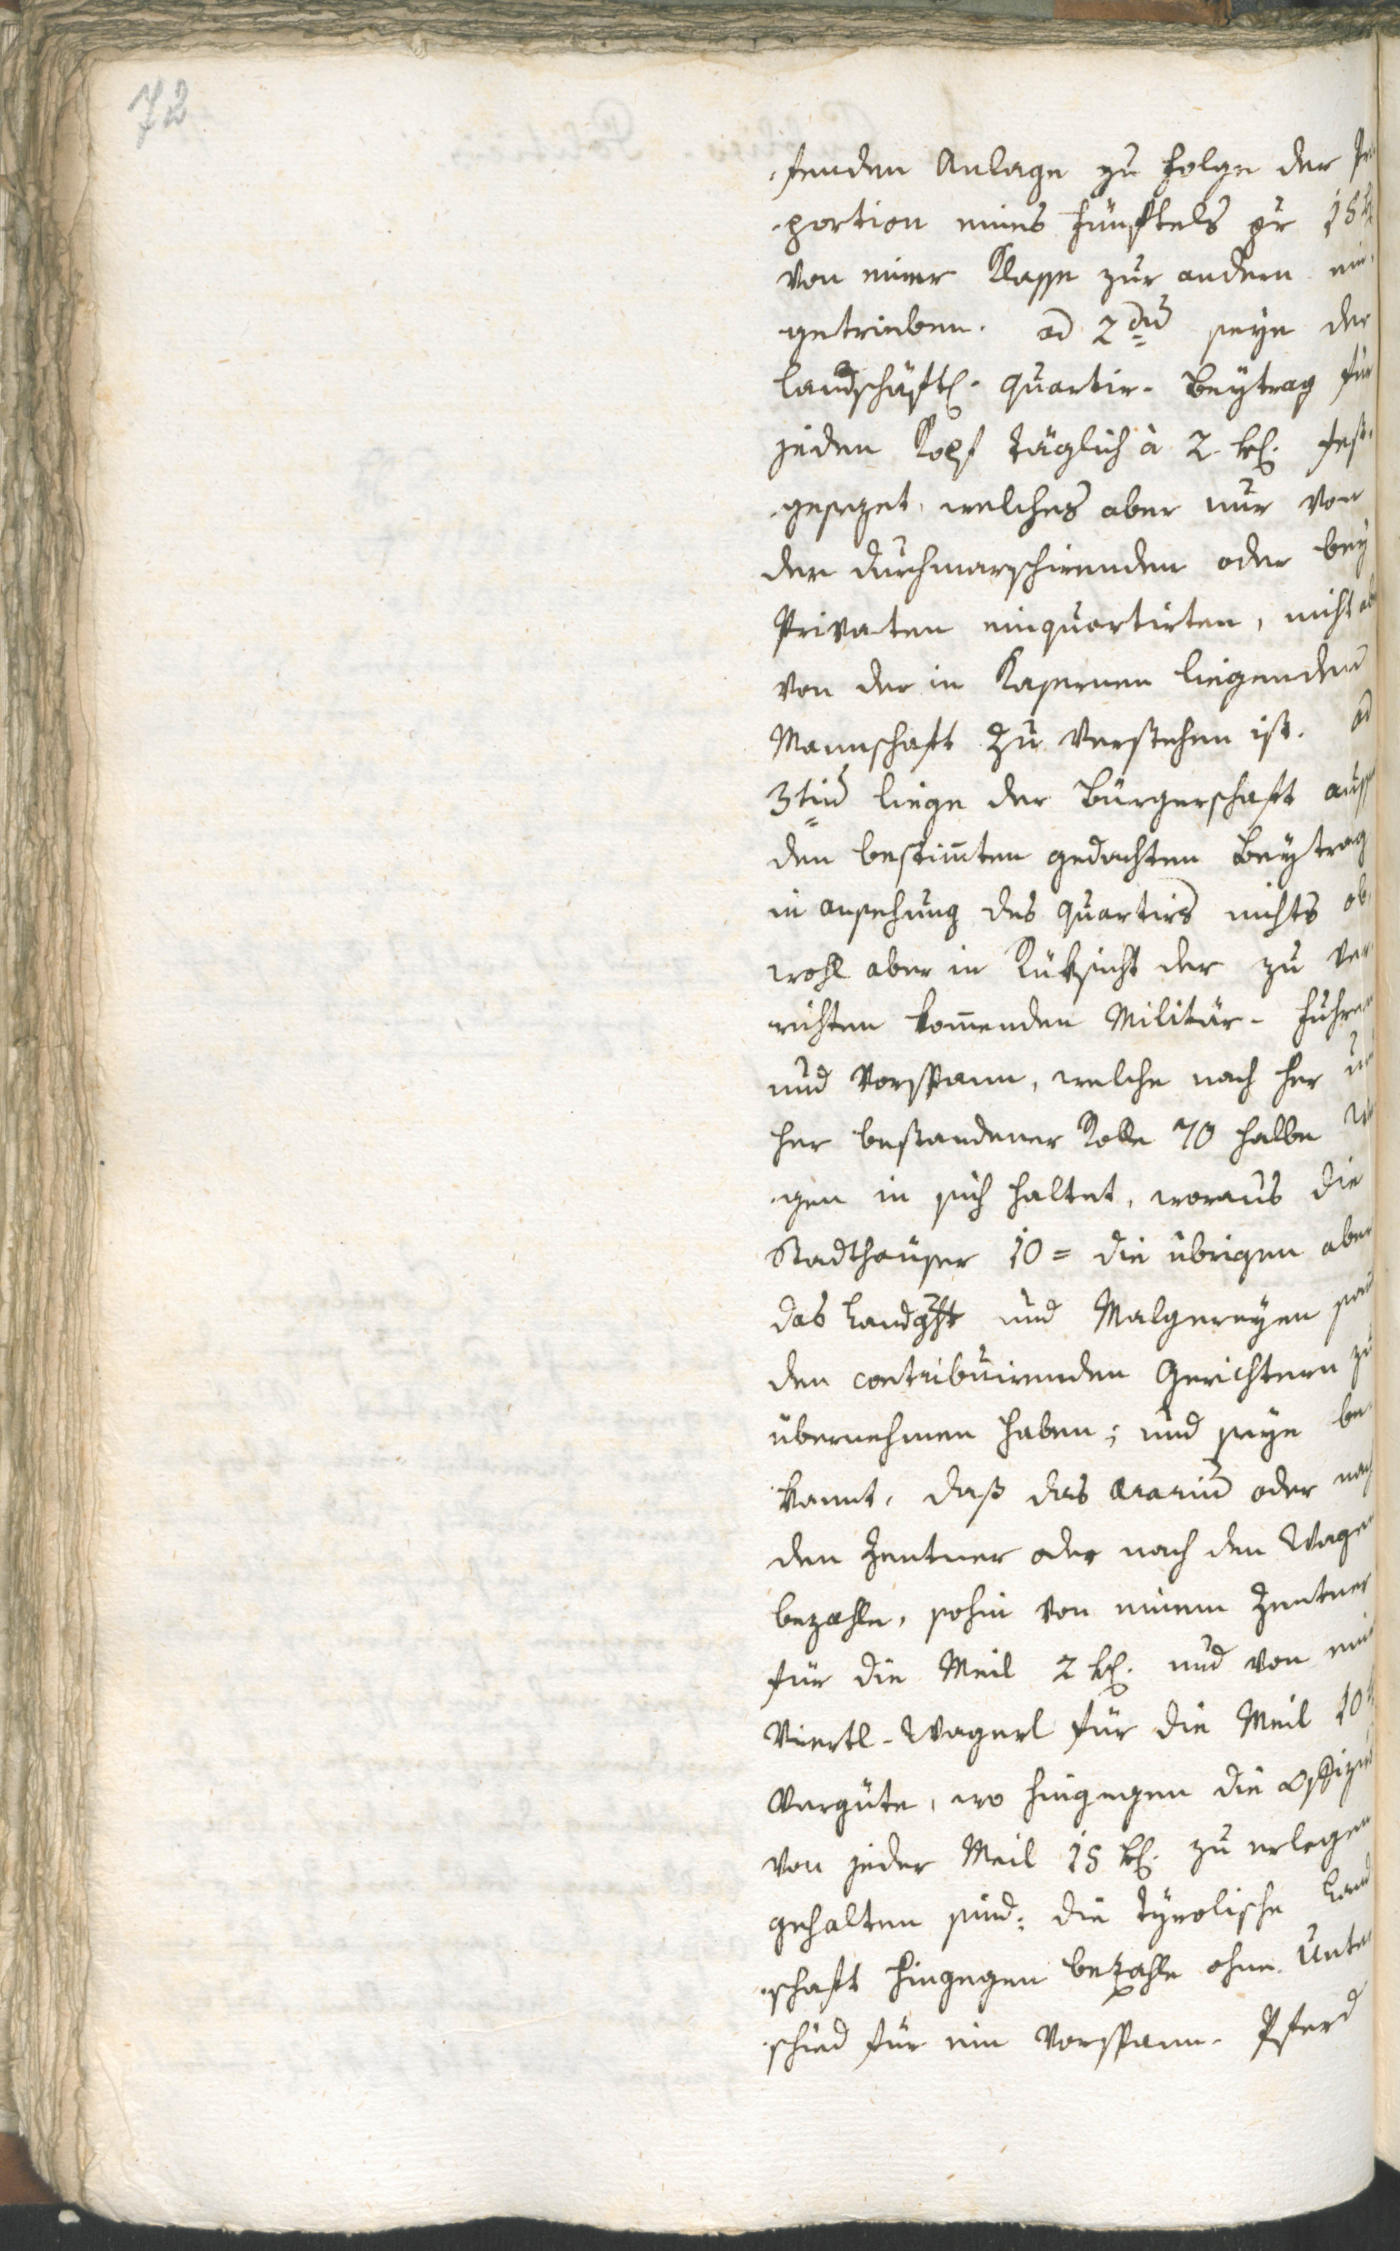 72
fenden Anlage zu folge der Pro
portion eines fünftels pr 18 k
von einer Klasse zur andern ein
getrieben. ad 2dũ seye der
landschäftl. quartir-Beytrag für
jeden Kopf täglich à 2 kr. fest
gesezet, welches aber nur von
der durchmarschirenden oder bey
Privaten einquartirten, nicht ab
von der in Kasernen liegenden
Mannschaft zu verstehen ist. ad
3tiũ liege der Bürgerschaft auss
den bestim̃ten gedachten Beytrag
in ansehung des quartirs nichts ob,
wohl aber in Rüksicht der zu ver
richten kom̃enden Militär-Fuhren
und Vorspann, welche nach her un
her bestandener Rolle 70 halbe Wä
gen in sich haltet, woraus die
Stadthäuser 10 = die übrigen aber
das Landgħt und Malgereyen sam̃
den contribuirenden Gerichtern zu
übernehmen haben; und seye be
kannt, daß das Aerariũ oder nach
den Zentner oder nach den Wagen
bezahle, sohin von einem Zentner
für die Meil 2 kr. und von ein
Viertl-Wagerl für die Meil 10 k
vergüte, wo hingegen die Offizir
von jeder Meil 15 kr. zu erlegen
gehalten sind; die tyrolische Land
schaft hingegen bezahle ohne Unter
schied für ein Vorspann-Pferd